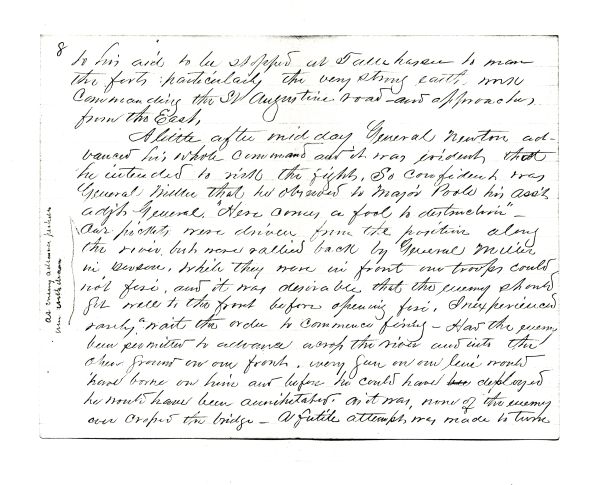 8
to his aid to be stopped at Tallehassee to man
the forts particularly the very strong earth work
Commanding the St Augustine road and approaches
from the East,
A little after mid day General Newton ad-
vanced his whole command and it was evident that
he intended to risk the fight. So confident was
General Miller that he observed to Major Poole his ass't
adj't General, "Here comes a fool to destruction" –
Our pickets were driven from the position along
the river but were rallied back by General Miller
in person. While they were in front our troops could
not fire, and it was desirable that the enemy should
get well to the front before opening fire. Inexperienced
rarely wait the order to commence firing – Had the enemy
been permitted to advance across the river and into the
open ground on our front, every gun on our line would
have borne on him and before he could have deployed
he would have been annihilated. As it was, none of the enemy
ever crossed the bridge – A futile attempt was made to turn
as enemy advance pickets
were withdrawn